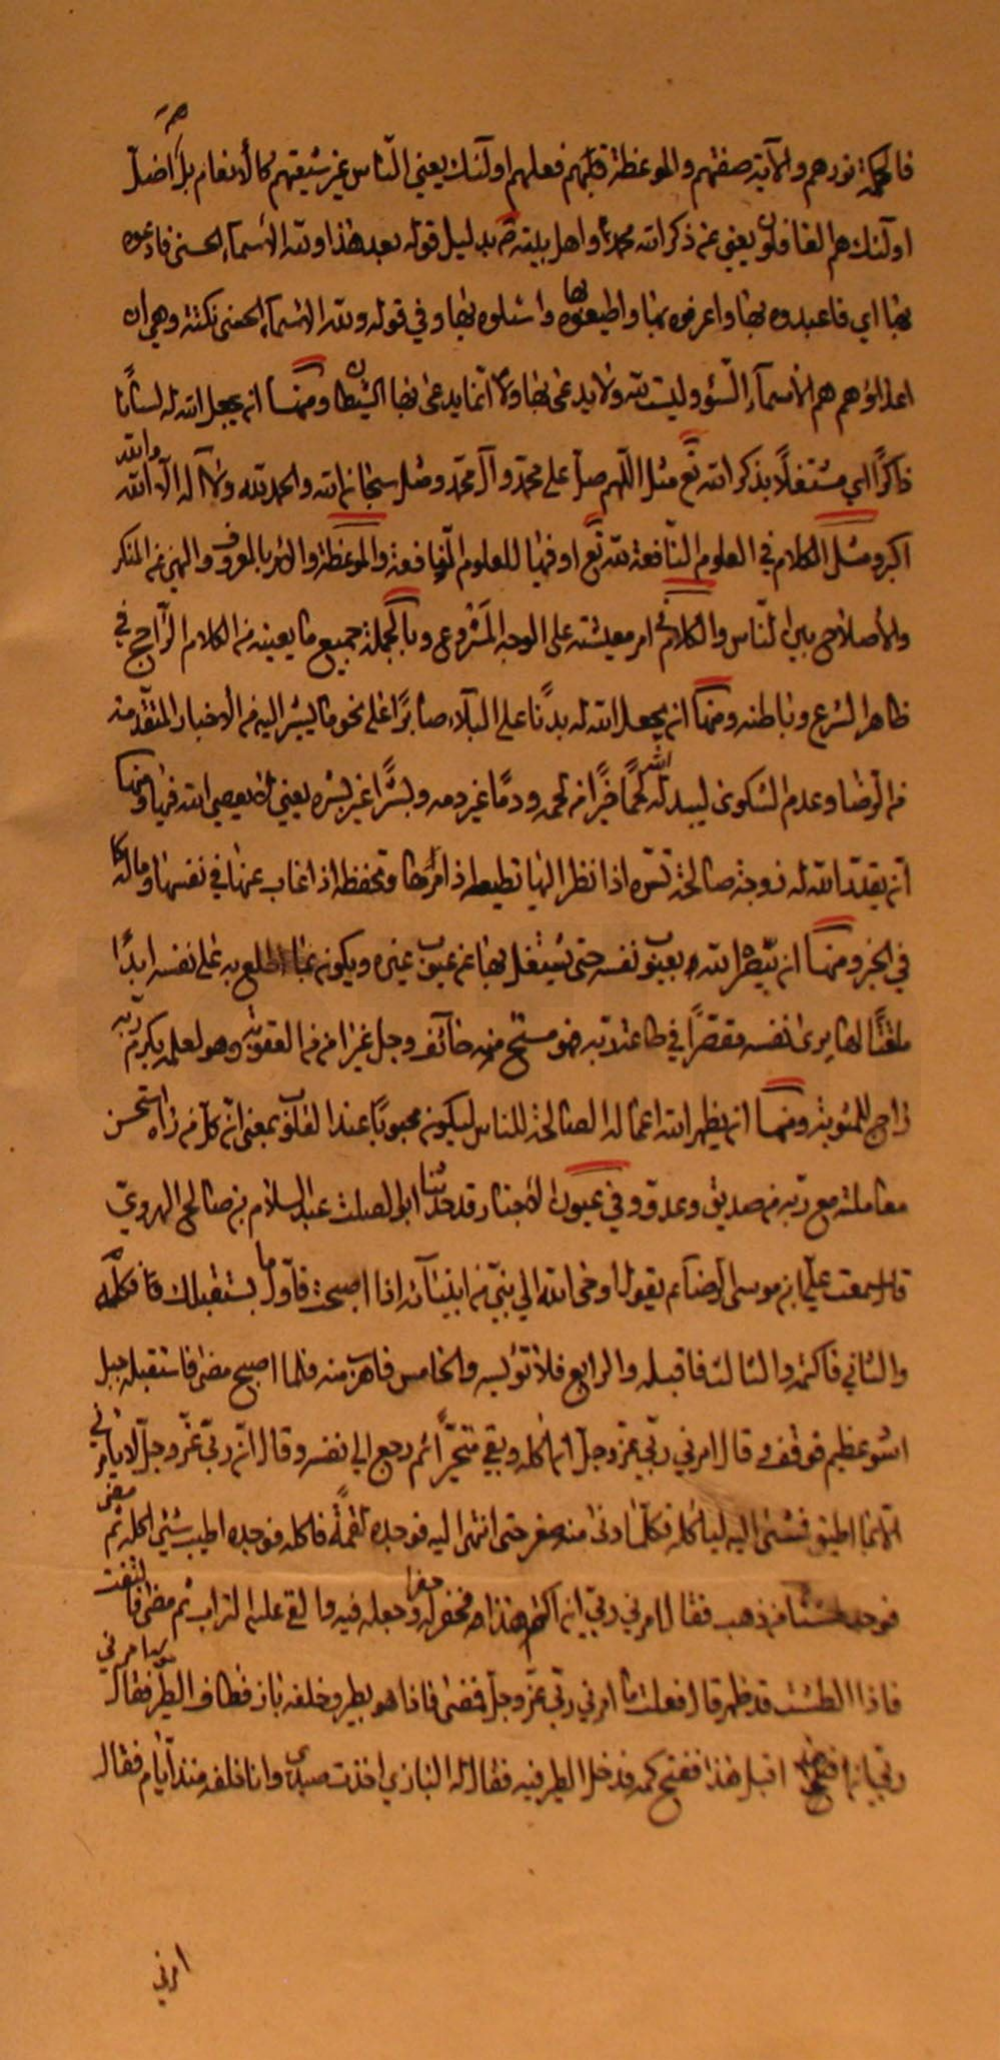 فالحكمة نورهم والآية صفتهم والموعظة فعلهم اولئك يعني النّاس غير شيعتهم كالأنعام بل هم اضلّ
اولئك هم الغافلون يعني عن ذكر الله محمد واهل بيته بدليل قوله بعد هذا ولله الأسمآء الحسنى فادعوه
بها اي فاعبدوه بها واعرفوه بها واطيعوه بها واسئلوه بها وفي قوله ولله الاسمآء الحسنى نكتة وهي ان
اعدائهم هم الأسمآء السّوٓء وليست لله ولا يدعى بها ولا انّما يدعى بها الشيطان ومنها ان يجعل الله له لسانًا
ذاكرًا اي مشتغلًا بذكر الله تع مثل اللّهم صلّ على محمّد وآل محمّد ومثل سبحان الله والحمد لله ولا آله الّا الله والله
اكبر ومثل الكلام في العلوم النّافعة لله تع او فيها للعلوم النّافعة والموعظة والامر بالمعروف والنهي عن المنكر
والأصلاح بين النّاس والكلام في امر معيشته على الوجه المشروع وبالجملة جميع ما يعينه من الكلام الرّاجح في
ظاهر الشرع وباطنه ومنها ان يجعل الله له بدنًا على البلآء صابرًا على نحو ما يشير اليه من الأخبار المتقدّمة
من الرّضا وعدم الشكوى ليبدله الله لحمًا خيرًا من لحمه ودمًا غير دمه وبشرًا غير بشره يعني لم يعصي الله فيها ومنها
ان يقدّر الله له زوجة صالحة تسرّه اذا نظر اليها تطيعه اذا امرها وتحفظه اذا غاب عنها في نفسها وماله كما
في الخبر ومنها ان يبصّر الله بعيوب نفسه حتى يشتغل بها عن عيوب غيره ويكون بما اطلع به على نفسه ابدًا
ماقتًا لها يرى نفسه مقصّرًا في طاعة ربّه فهو مستحٍ منه خائف وجل غير امن من العقوبة وهو لعلمه بكرم ربّه
راج للمثوبة ومنها ان يظهر الله اعماله الصالحة للناس ليكون محبوبًا عند القلوب بمعنى انّ كلّ من راه استحسن
معاملته مع ربّه من صديق وعدوّ وفي عيون الاخبار قد حدّثنا ابو الصلت عبد السلام بن صالح الهروي
قال سمعت عليّ ابن موسى الرّضا ع يقول اوحى الله الى نبيّ من انبيآئه اذا اصبحت فاوّل ما يستقبلك فكله
والثاني فاكتمه والثالث فاقبله والرابع فلا تؤيسه والخامس فاهرب منه فلما اصبح مضى فاستقبله جبل
اسود عظيم فوقف وقال امرني ربّي عزّ وجلّ ان اكله وبقي متحيّرًا ثم رجع الى نفسه وقال انّ ربّي عزّ وجلّ لا يأمرني
الّا بما اطيق فمشى اليه ليأكله فكلّما دنى منه صغر حتى انتهى اليه فوجده لقمةً فاكله فوجده اطيب شيء اكله ثم مضى
فوجد طشتًا من ذهب فقال امرني ربّي ان اكتم هذا فحفر له حفرة وجعله فيه والقى عليه التراب ثم مضى فالتفت
فاذا الطشت قد ظهر قال فعلت ما امرني ربّي عزّ وجلّ فمضى فاذا هو بطير وخلفه باز فطاف الطير فقال امرني
ربّي ان اقبل هذا ففتح كمه فدخل الطير فيه فقال له البازي اخذت صيدي وانا خلفه منذ ايّام فقال
امرني